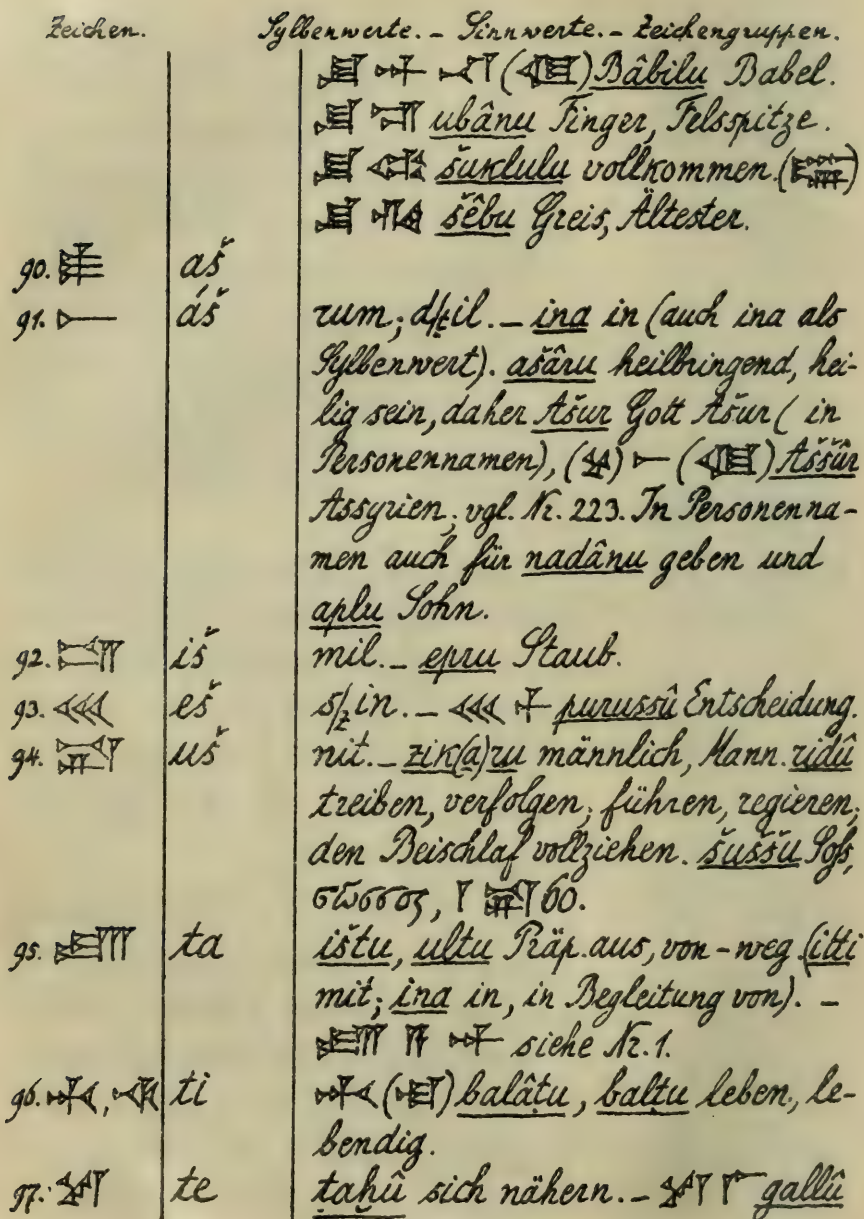 Zeichen. Sylbenwerte. - Sinnwerte. - Zeichengruppen.
𒆍 𒀭 𒊏 (𒆠) Bâbilu Babel.
ubânu Finger, Felsspitze.
šuklulu vollkommen. ()
šêbu Greis, Ältester.
90. 𒀾 aš
91. 𒀸 áš rum; d/ṭil. _ ina in (auch ina als
Sylbenwert). ašâru heilbringend, hei-
lig sein, daher Ašur Gott Ašur ( in
Personennamen), () 𒀸 (𒆠) Aššûr
Assyrien; vgl. Nr. 223. In Personenna-
men auch für nadânu geben und
aplu Sohn.
92. 𒅖 iš mil. _ epru Staub.
93. 𒌍 eš s/ẓin. _ 𒌍 𒁇 purussû Entscheidung.
94. 𒍑 uš nit. _ zik(a)ru männlich, Mann. ridû
treiben, verfolgen; führen, regieren;
den Beischlaf vollziehen. šuššu Soß,
σῶσσος, 𒁹 𒍑 60.
95. 𒋫 ta ištu, ultu Präp. aus, von-weg (itti
mit; ina in, in Begleitung von). -
𒋫 𒀀 𒀭 siehe Nr. 1.
96. 𒋾, ti 𒋾 () balâṭu, balṭu leben, le-
bendig.
97. 𒋼 te ṭaḫû sich nähern. - 𒋼 𒇲 gallû